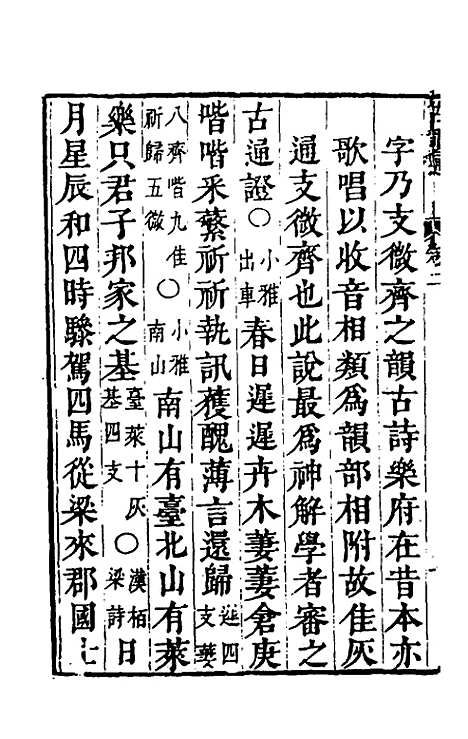 字乃支微齊之韻古詩樂府在昔本亦
歌唱以收音相類爲韻部相附故佳灰
通支微齊也此說最爲神解學者審之
古通證〇小雅出車春日遲遲卉木萋萋倉庚
喈喈釆蘩祈祈執訊獲醜薄言還歸遲四支萋
八齊喈九佳祈歸五微〇小雅南山南山有臺北山有萊
樂只君子邦家之基臺萊十灰基四支〇漢栢梁詩日
月星辰和四時驂駕四馬從梁來郡國士